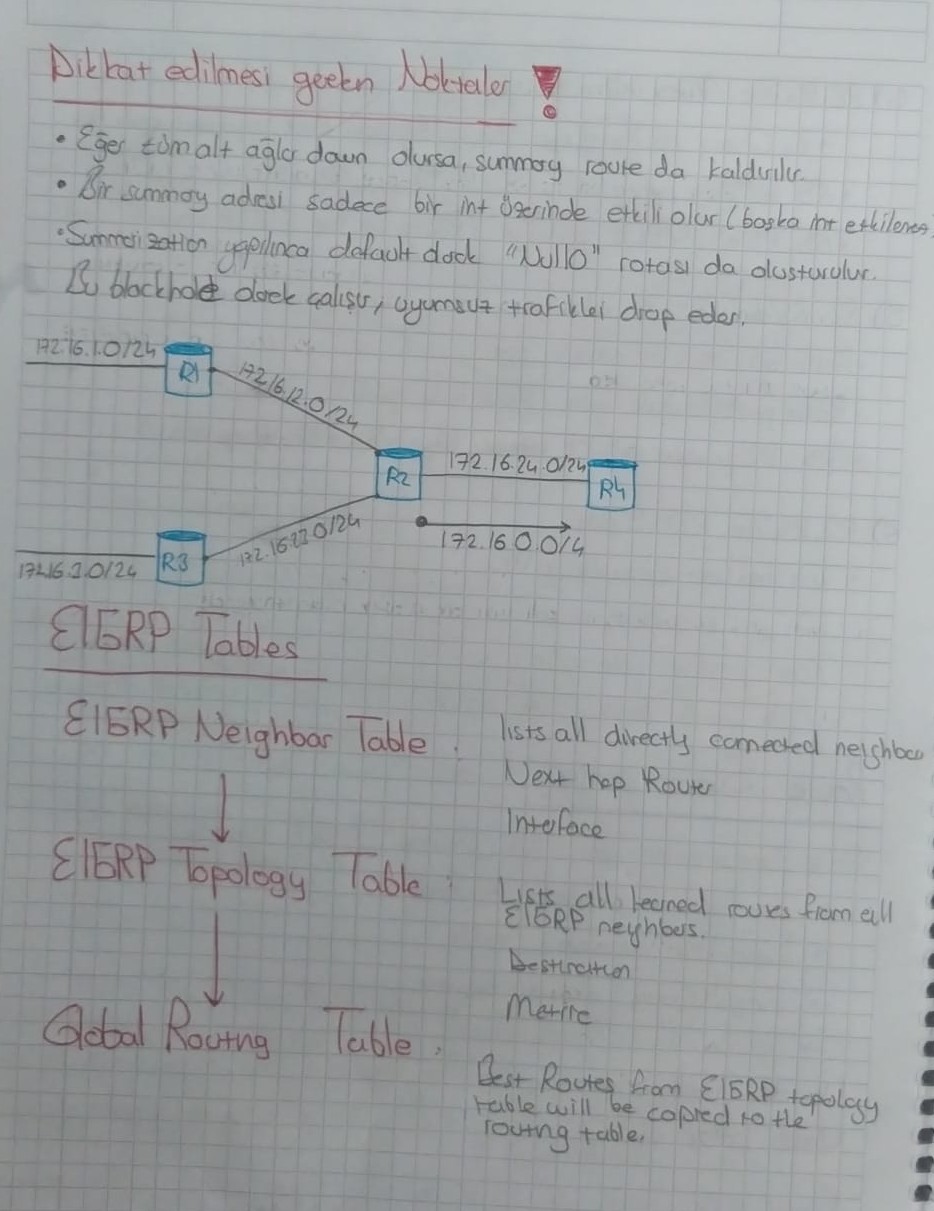 Dikkat edilmesi gereken Noktalar !
• Eğer tüm alt ağlar down olursa, summary route da kaldırılır.
• Bir summary adresi sadece bir int üzerinde etkili olur (başka int etkilenmez)
• Summarization yapılınca default olarak "Null0" rotası da oluşturulur.
Bu blackhole olarak çalışır, uyumsuz trafikleri drop eder.
172.16.1.0/24
R1
172.16.12.0/24
R2
172.16.24.0/24
R4
172.16.0.0/4
172.16.23.0/24
R3
172.16.3.0/24
EIGRP Tables
EIGRP Neighbor Table :
lists all directly connected neighbor
Next hop Router
Interface
EIGRP Topology Table :
Lists all learned routes from all
EIGRP neighbors.
Destination
Metric
Global Routing Table :
Best Routes from EIGRP topology
table will be copied to the
routing table.